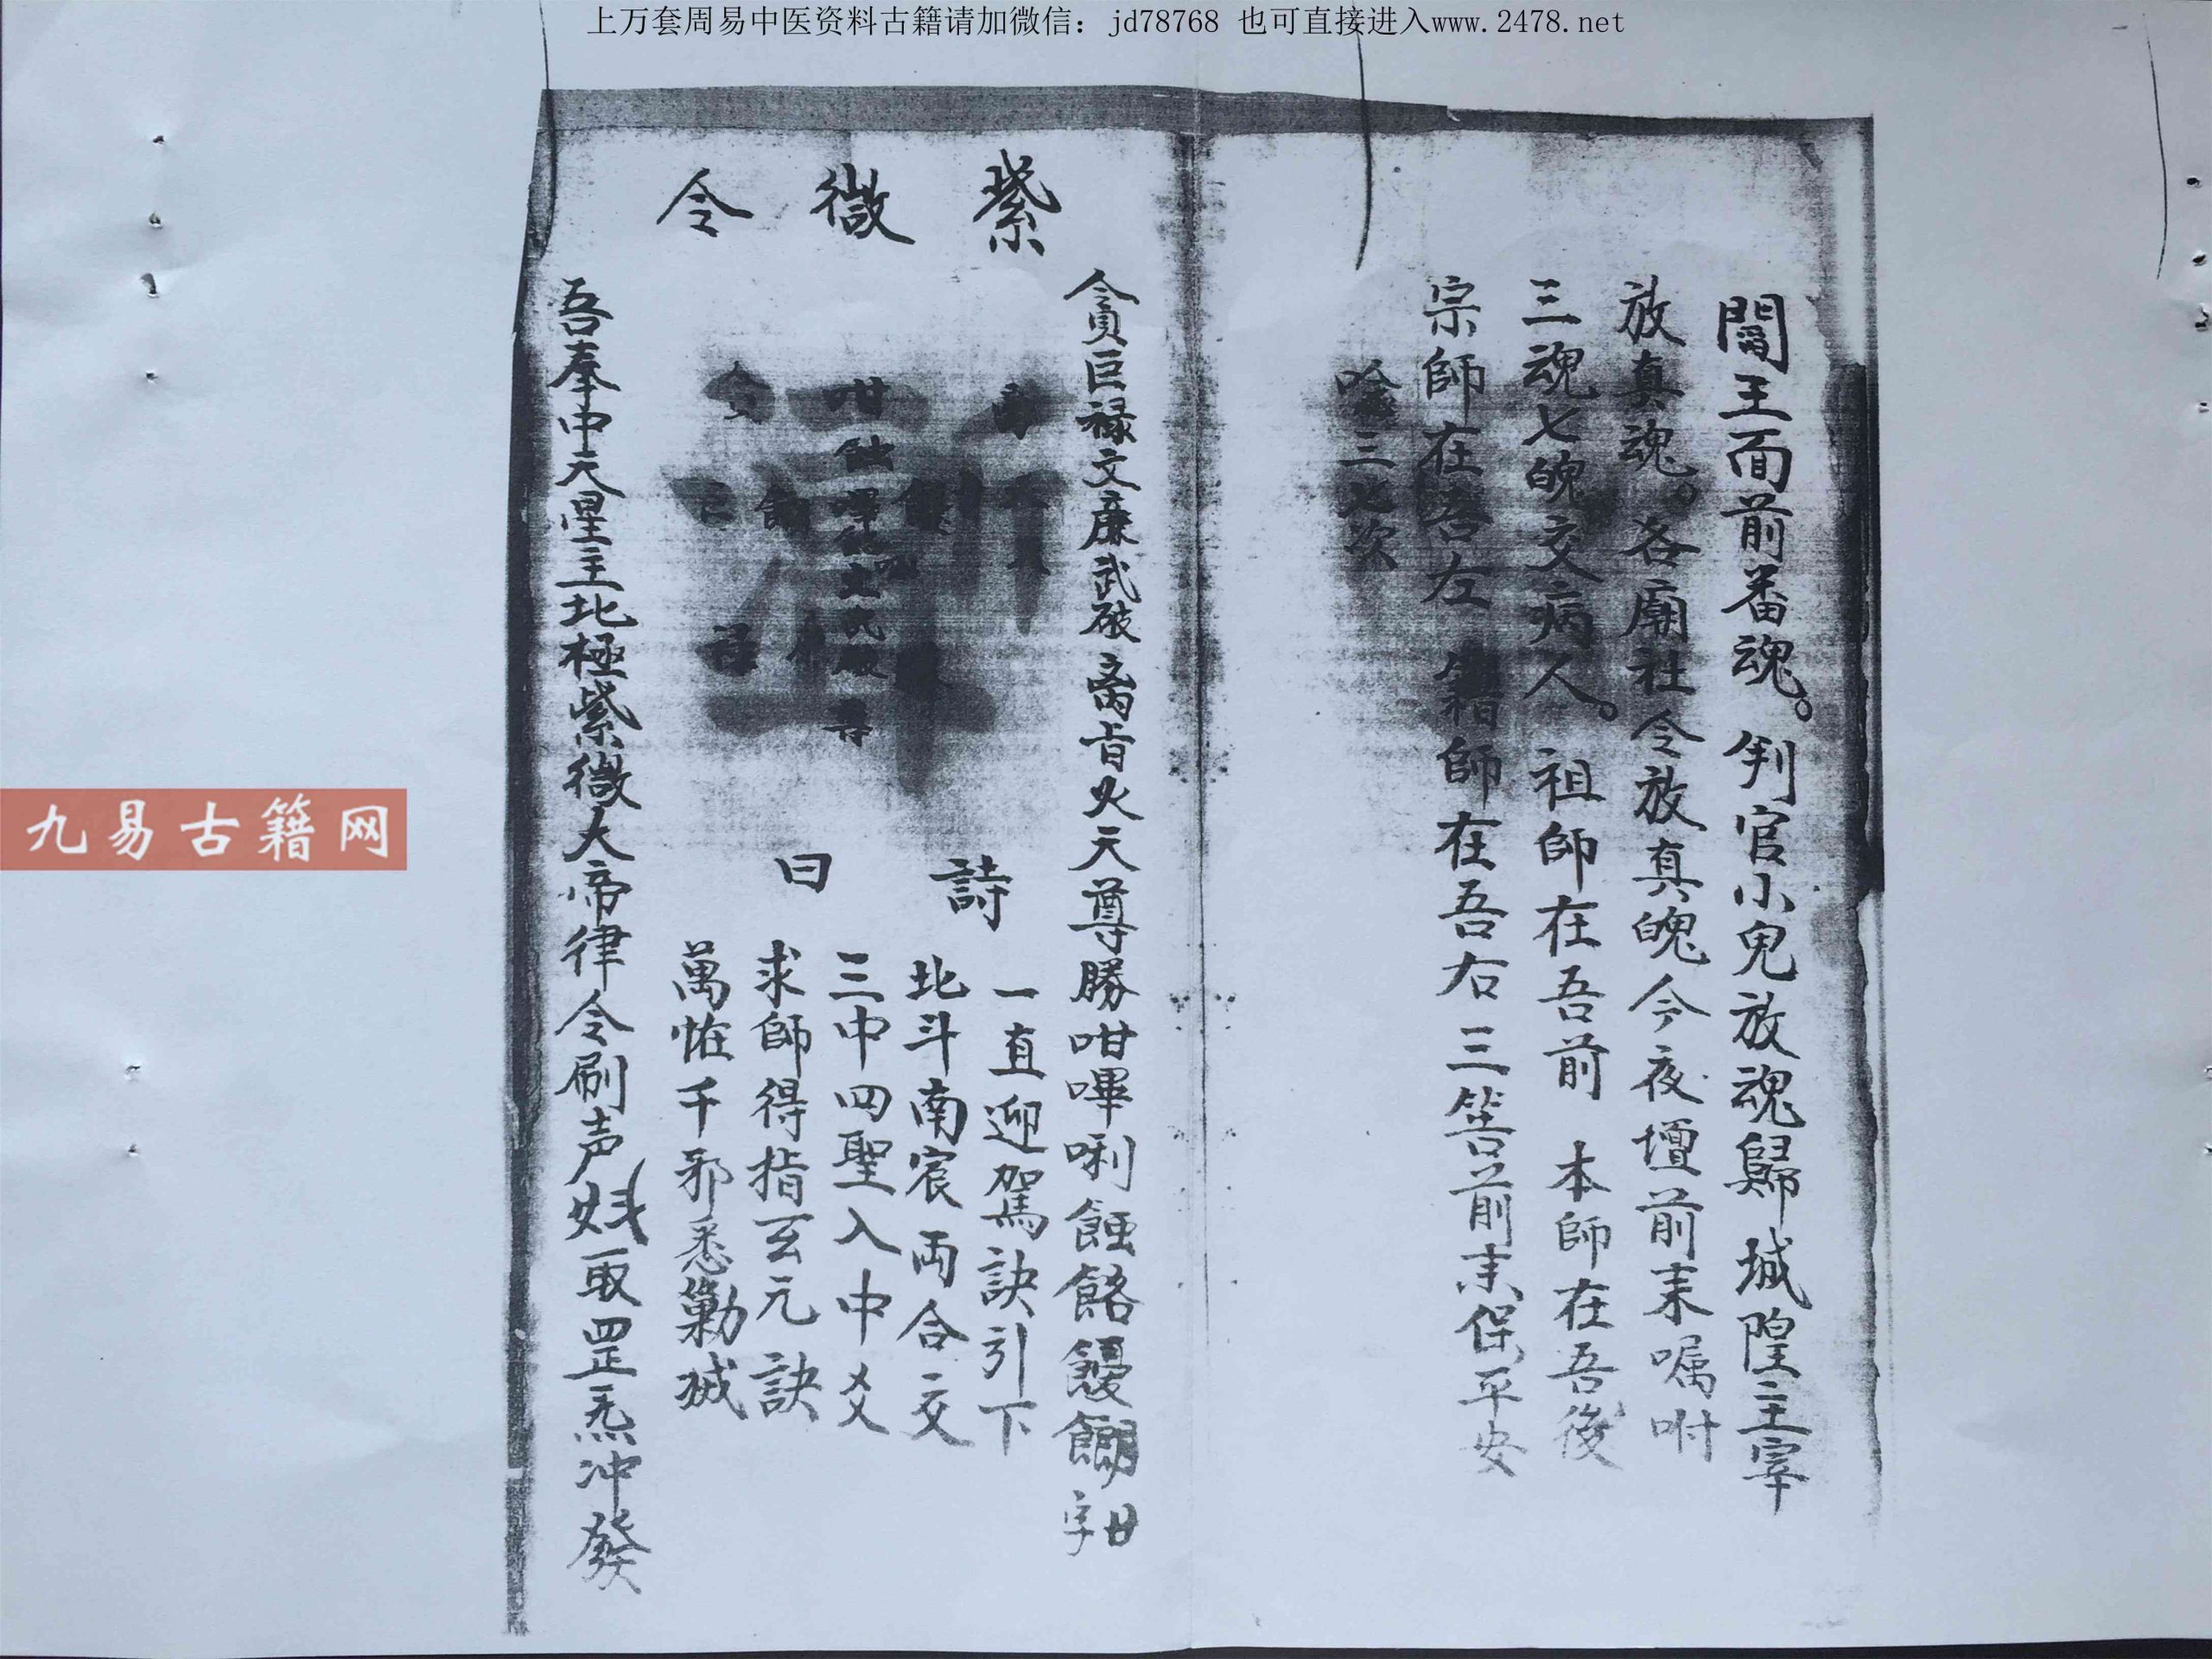 上万套周易中医资料古籍请加微信：jd78768 也可直接进入www.2478.net
王面前番魂。判官小鬼放魂歸城隍主宰
放真魂。各廟社令放真魄今夜壇前来嘱咐
三魂七魄交病人。祖師在吾前 本師在吾後
宗師在吾左 籍師在吾右三答前来保平安
三七次
紫微令
貪巨禄文廉武破 天尊勝咁嗶唎
詩曰
一直迎駕訣引下
北斗南宸両合交
三中四聖入中爻
求師得指玄元訣
萬恠千邪悉勦滅
吾奉中天星主北極紫微大帝律令刷声 取罡炁冲發
九易古籍网